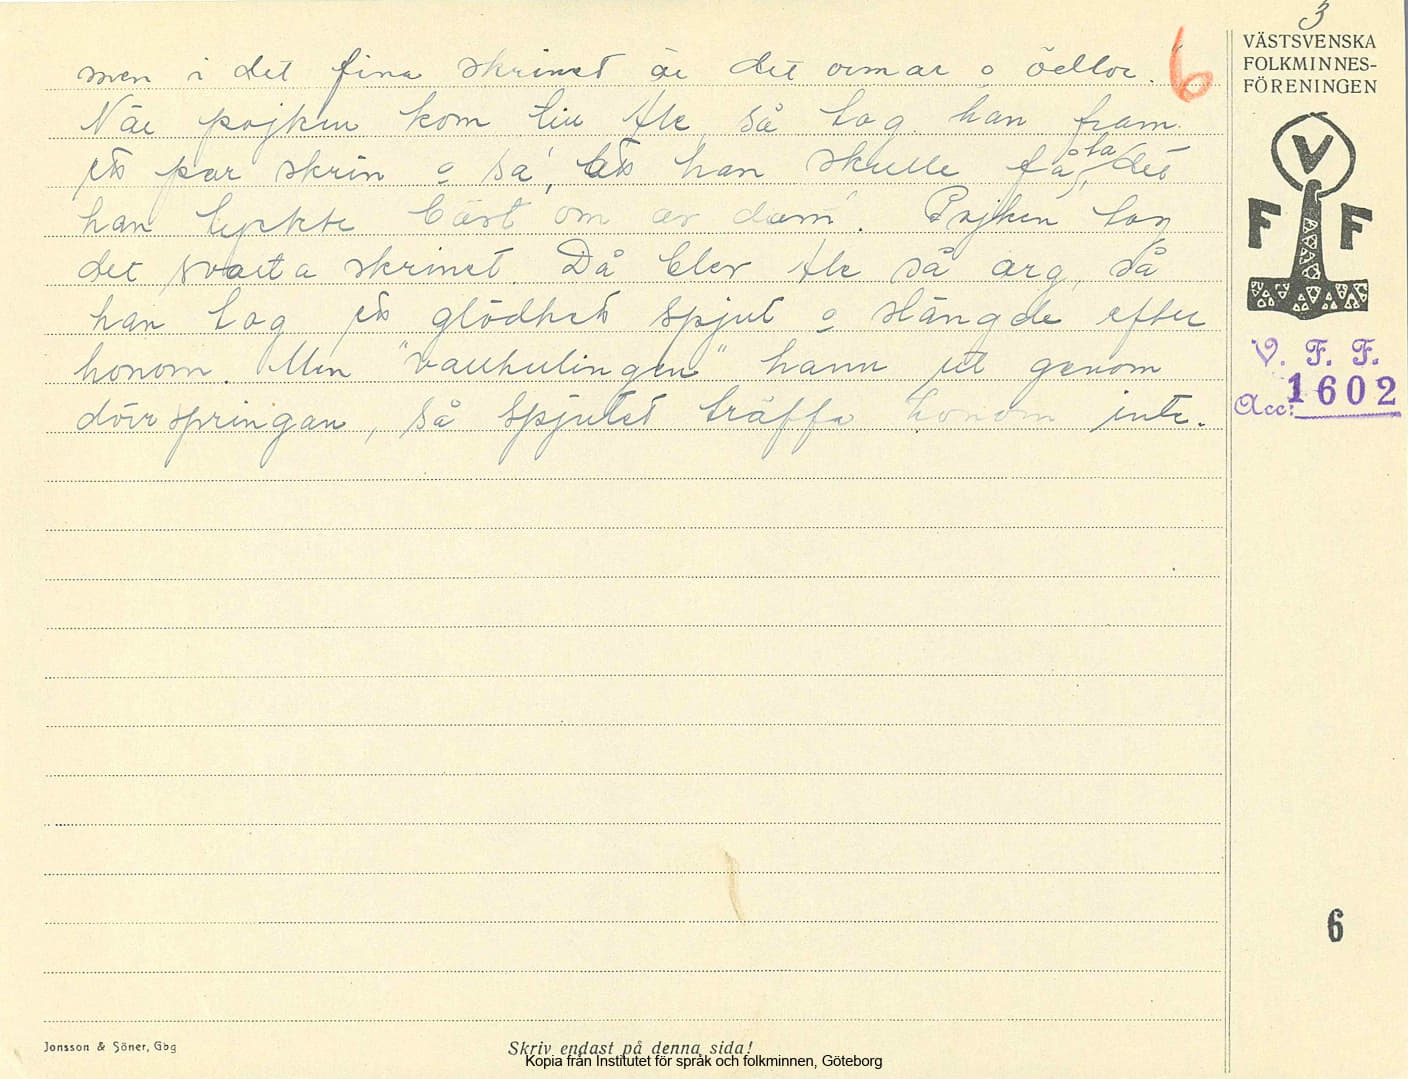 3
VÄSTSVENSKA
FOLKMINNES-
FÖRENINGEN
6
men i det fina skrinet är det ormar o ödlor.
När pojken kom till Ale, så tog han fram
ett par skrin o sa', att han skulle få ta det
han tyckte bäst om av dom. Pojken tog
det svarta skrinet. Då blev Ale så arg, så
han tog ett glödhett spjut o slängde efter
honom. Men "vallhulingen" hann ut genom
dörrspringan, så spjutet träffa honom inte.
V F F
V. F. F.
Acc: 1602
6
Jonsson & Söner, Gbg
Skriv endast på denna sida!
Kopia från Institutet för språk och folkminnen, Göteborg